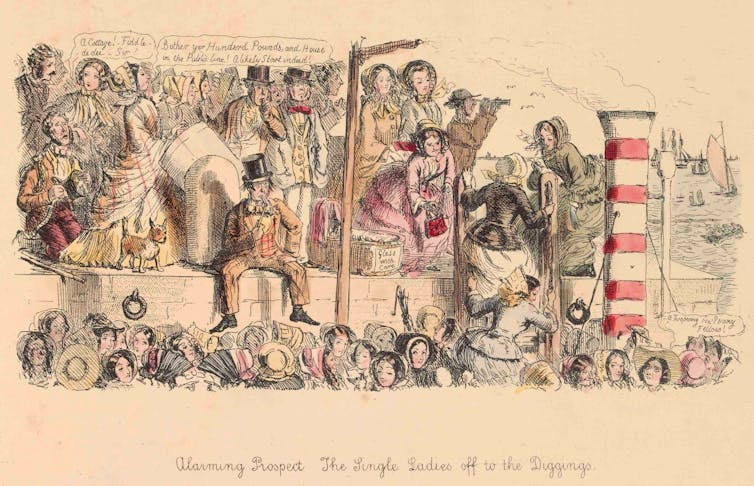 A Cottage! Fiddle-
de dee - Sir!
Bother yer Hunderd Pounds, and House
in the Public line! A likely Start indeed!
Glass
with
Fellow!
Alarming Prospect The Single Ladies off to the Diggings.